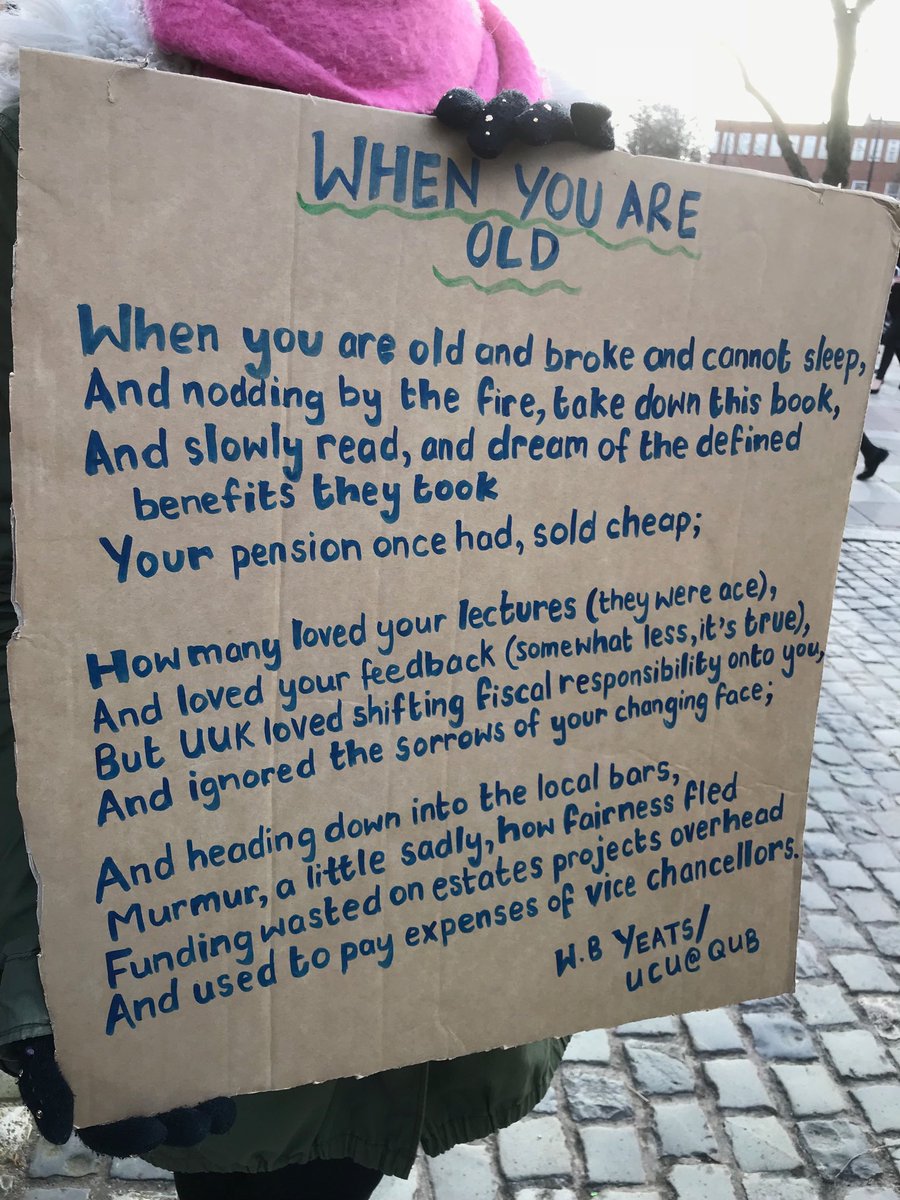 WHEN YOU ARE
OLD
When you are old and broke and cannot sleep,
And nodding by the fire, take down this book,
And slowly read, and dream of the defined
benefits they took
Your pension once had, sold cheap;
How many loved your lectures (they were ace),
And loved your feedback (somewhat less, it's true),
But UUK loved shifting fiscal responsibility onto you,
And ignored the sorrows of your changing face;
And heading down into the local bars,
Murmur, a little sadly, how fairness fled
Funding wasted on estates projects overhead
And used to pay expenses of vice chancellors.
W.B YEATS/
UCU@QUB